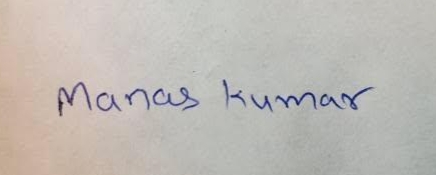 Manas kumar